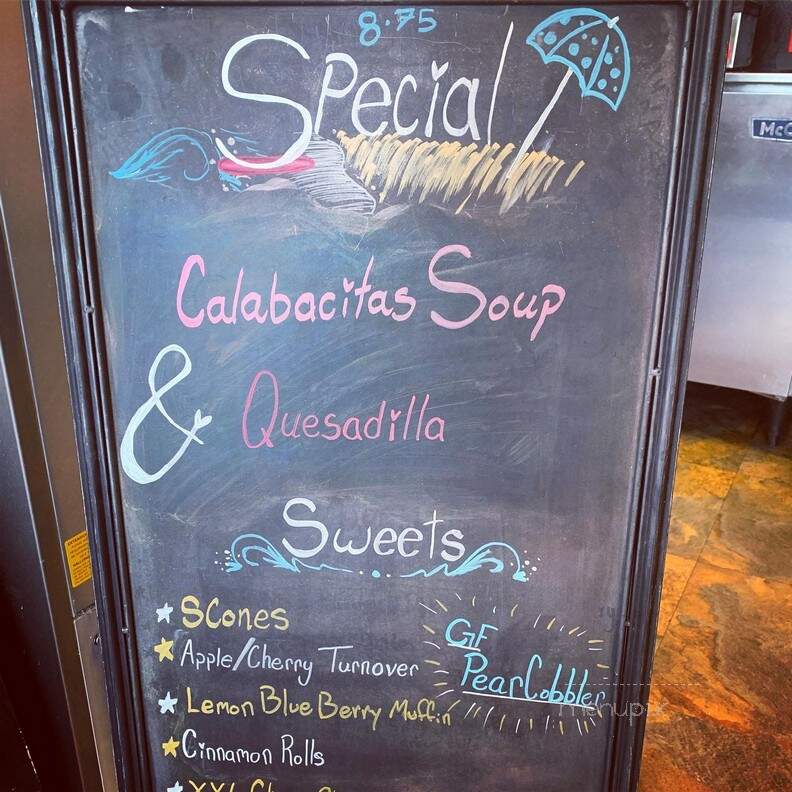 8.75
Special
Calabacitas Soup
& Quesadilla
Sweets
Scones
Apple/Cherry Turnover
GF
Pear Cobbler
Lemon Blue Berry Muffin
Cinnamon Rolls
XXL
McC
menupix